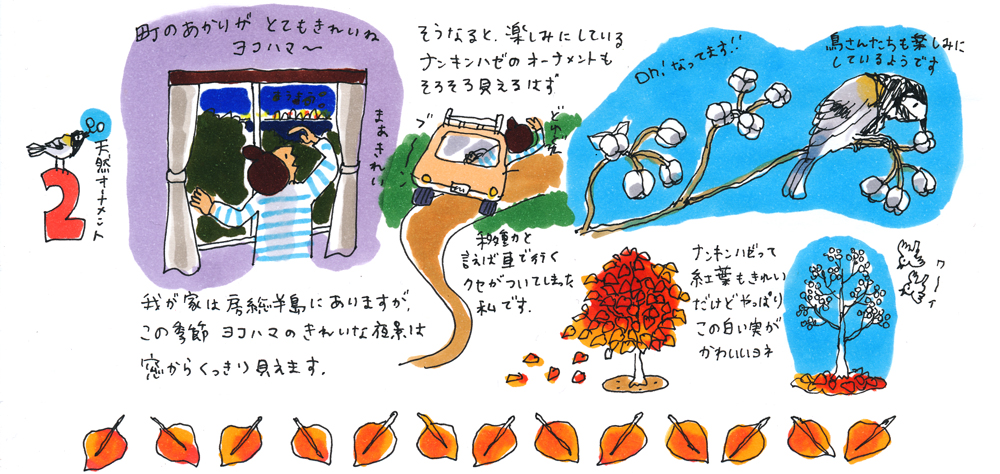 2
天然オーナメント
町のあかりが とてもきれいね
ヨコハマ〜
まあきれい
我が家は房総半島にありますが、
この季節 ヨコハマのきれいな夜景は
窓からくっきり見えます。
そうなると、楽しみにしている
ナンキンハゼのオーナメントも
そろそろ見えるはず
移動と
言えば車で行く
クセがついてしまった
私です。
Oh! なってます!!
鳥さんたちも楽しみに
しているようです
ナンキンハゼって
紅葉もきれい
だけどやっぱり
この白い実が
かわいいヨネ
ワーイ